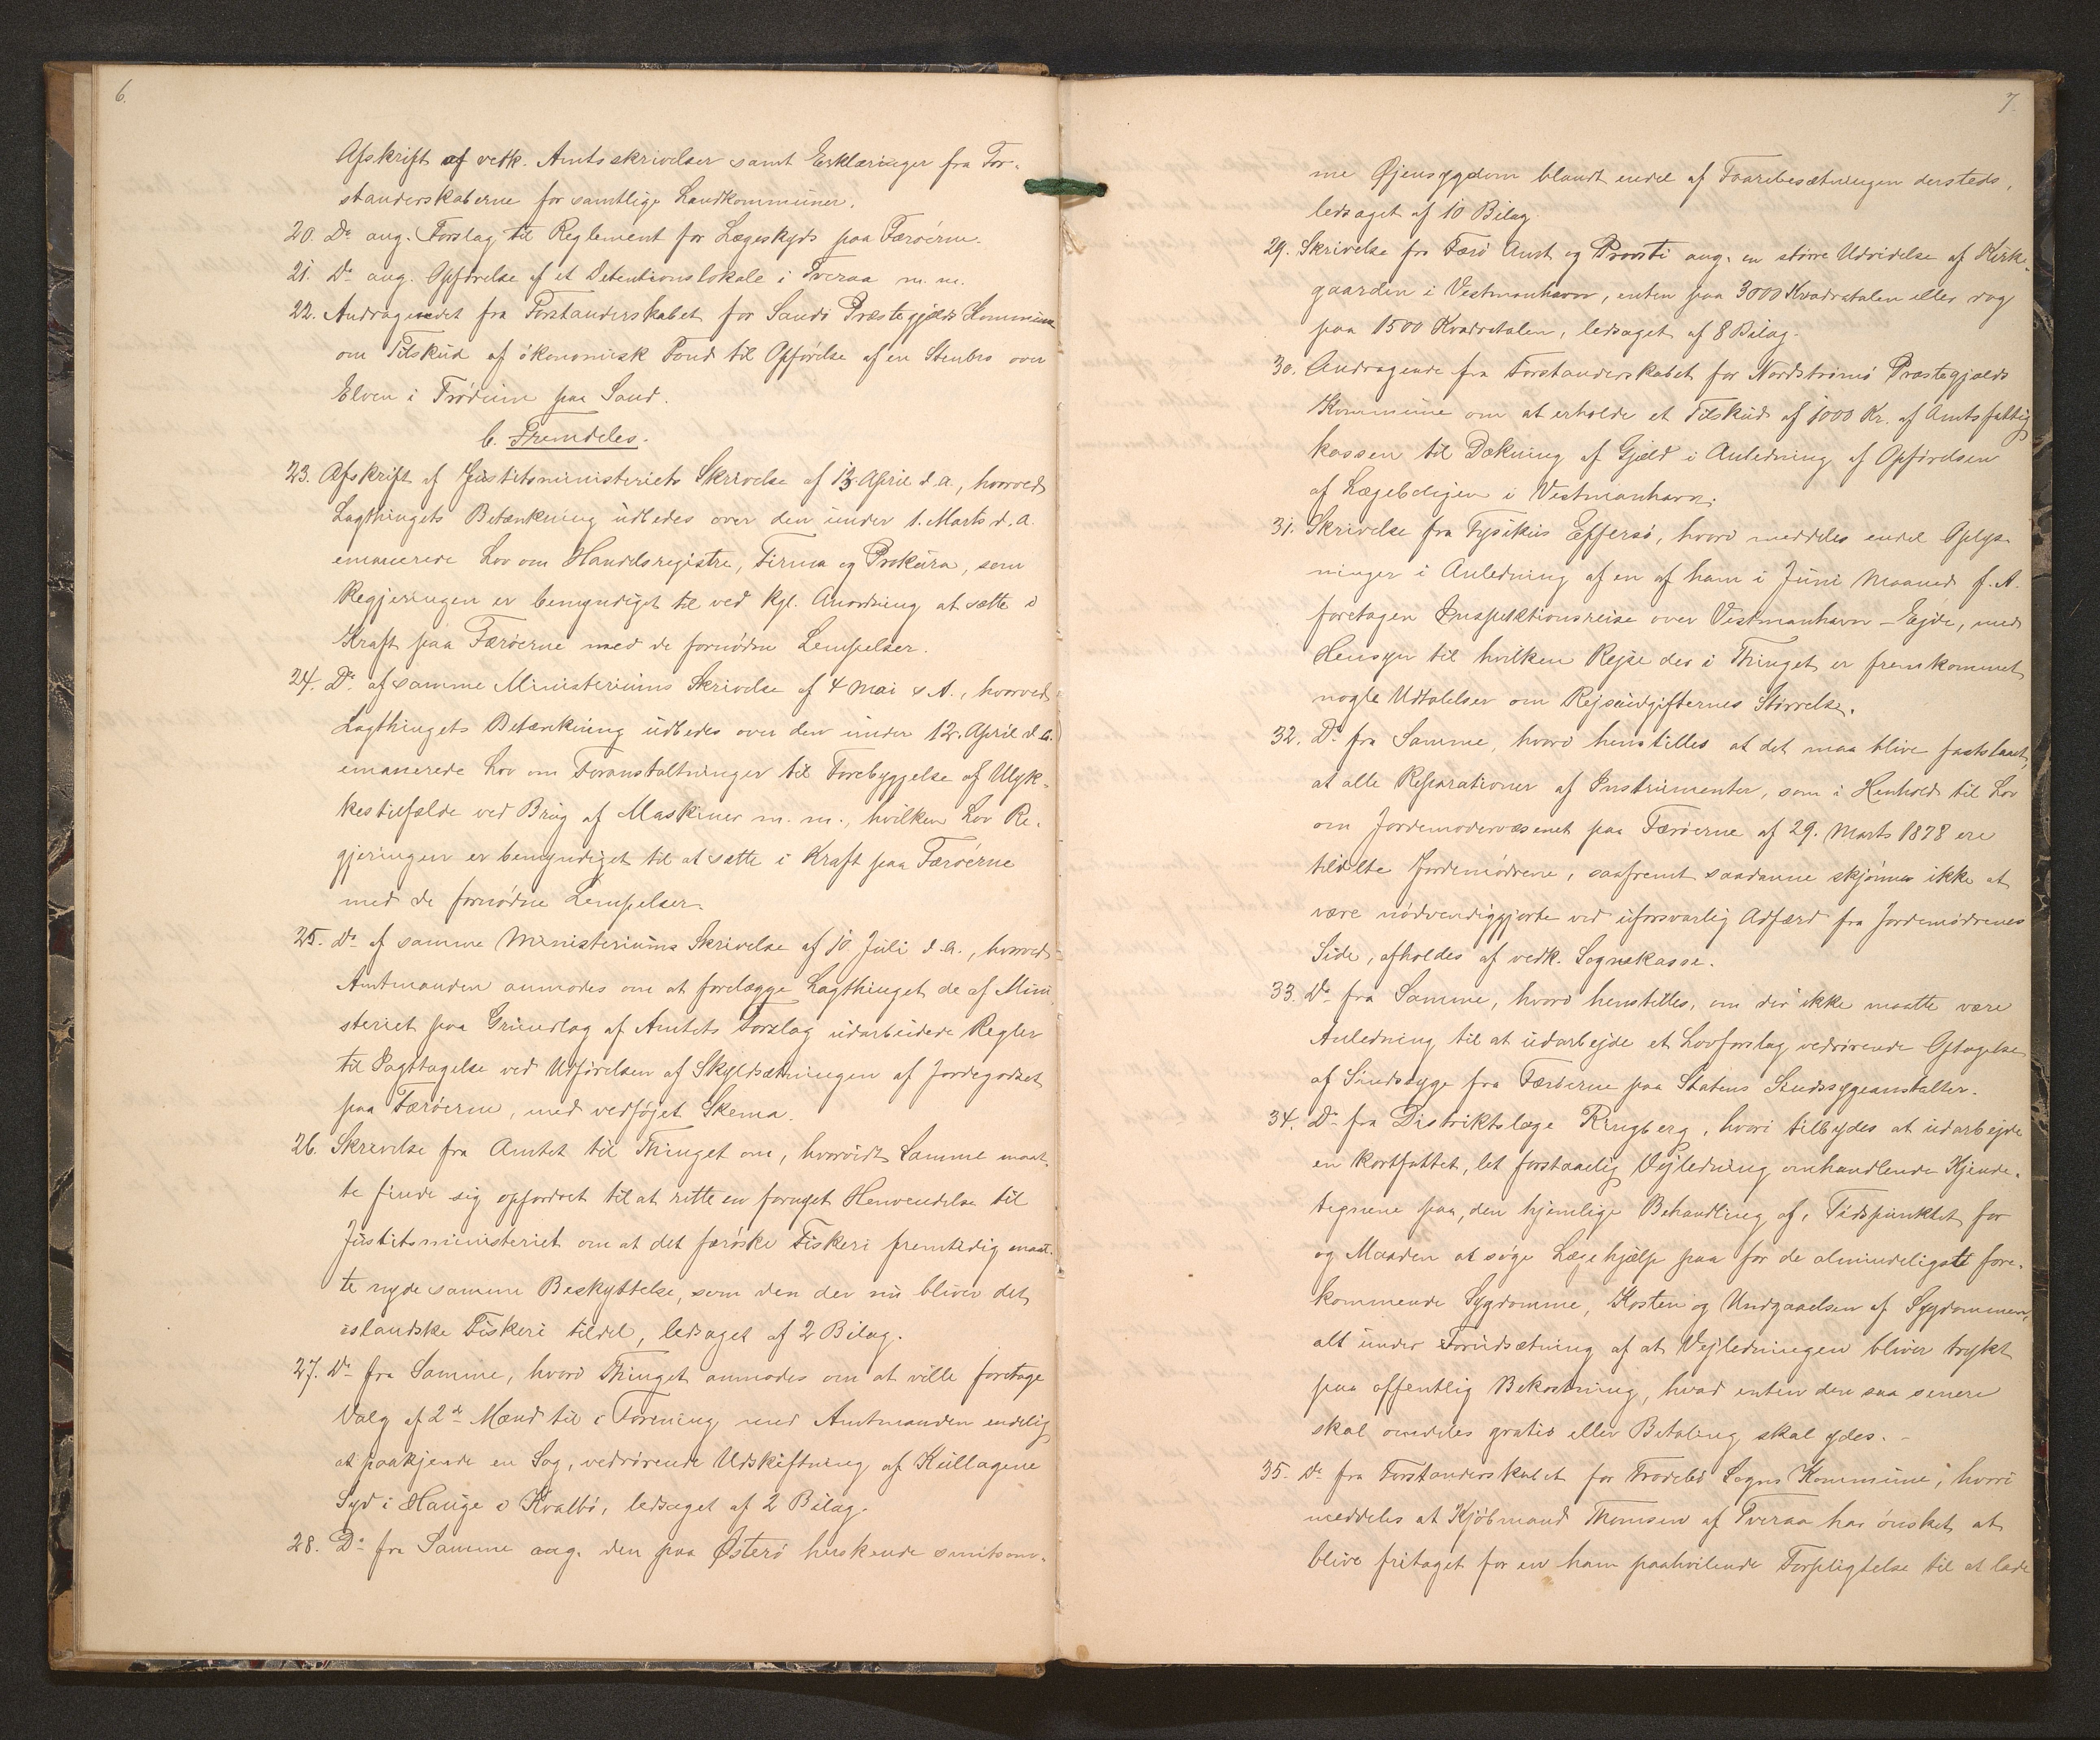 6.
Afskrift af vedk. Amtsskrivelser samt Erklæringer fra For-
standerskaberne for samtlige Landkommuner.
20. Do ang. Forslag til Reglement for Lægeskyds paa Færøerne.
21. Do ang. Opførelse af et Detentionslokale i Tveraa m. m.
22. Andragendet fra Forstanderskabet for Sandø Præstegjælds Kommune
om Tilskud af økonomisk Fond til Opførelse af en Stenbro over
Elven i Trødum paa Sand.
b. Fremdeles.
23. Afskrift af Justitsministeriets Skrivelse af 13. April d. a., hvorved
Lagthingets Betænkning udbedes over den under 1. Marts d. a.
emanerede Lov om Handelsregistre, Firma og Prokura, som
Regjeringen er bemyndiget til ved kgl. Anordning at sætte i
Kraft paa Færøerne med de fornødne Lempelser.
24. Do af samme Ministeriums Skrivelse af 4 Mai s. A., hvorved
Lagthingets Betænkning udbedes over den under 12. April d. a.
emanerede Lov om Foranstaltninger til Forebyggelse af Ulyk-
kestilfælde ved Brug af Maskiner m. m., hvilken Lov Re-
gjeringen er bemyndiget til at sætte i Kraft paa Færøerne
med de fornødne Lempelser.
25. Do af samme Ministeriums Skrivelse af 10 Juli d. a., hvorved
Amtmanden anmodes om at forelægge Lagthinget de af Mini-
steriet paa Grundlag af Amtets Forslag udarbeidede Regler
til Iagttagelse ved Udførelsen af Skyldsætningen af Jordegodset
paa Færøerne, med vedføjet Skema.
26. Skrivelse fra Amtet til Thinget om, hvorvidt Samme maat-
te finde sig opfordret til at rette en fornyet Henvendelse til
Justitsministeriet om at det færøske Fiskeri fremtidig maat-
te nyde samme Beskyttelse, som den der nu bliver det
islandske Fiskeri tildel, ledsaget af 2 Bilag.
27. Do fra Samme, hvori Thinget anmodes om at ville foretage
Valg af 2de Mænd til i Forening med Amtmanden endelig
at paakjende en Sag, vedrørende Udskiftning af Kullagene
Syd i Hauge i Kvalbø, ledsaget af 2 Bilag.
28. Do fra Samme ang. den paa Østerø herskende smitsom-
7.
me Øjensygdom blandt endel af Faarebesætningen dersteds,
ledsaget af 10 Bilag.
29. Skrivelse fra Færø Amt og Provsti ang. en større Udvidelse af Kirke-
gaarden i Vestmanhavn, enten paa 3000 Kvadratalen eller dog
paa 1500 Kvadratalen, ledsaget af 8 Bilag.
30. Andragende fra Forstanderskabet for Nordstrømø Præstegjælds
Kommune om at erholde et Tilskud af 1000 Kr. af Amtsfattig
kassen til Dækning af Gjæld i Anledning af Opførelsen
af Lægeboligen i Vestmanhavn.
31. Skrivelse fra Fysikus Effersø, hvori meddeles endel Oplys-
ninger i Anledning af en af ham i Juni Maaned f. A.
foretagen Inspektionsreise over Vestmanhavn - Ejde, med
Hensyn til hvilken Rejse der i Thinget er fremkommet
nogle Udtalelser om Rejseudgifternes Størrelse.
32. Do fra Samme, hvori henstilles at det maa blive fastslaaet,
at alle Reparationer af Instrumenter, som i Henhold til Lov
om Jordemodervæsenet paa Færøerne af 29. Marts 1878 ere
tildelte Jordemødrene, saafremt saadanne skjønnes ikke at
være nødvendiggjorte ved uforsvarlig Adfærd fra Jordemødrenes
Side, afholdes af vedk. Sognekasse.
33. Do fra Samme, hvori henstilles, om der ikke maatte være
Anledning til at udarbejde et Lovforslag vedrørende Optagelse
af Sindssyge fra Færøerne paa Statens Sindssygeanstalter.
34. Do fra Distriktslæge Ringberg, hvori tilbydes at udarbejde
en kortfattet, let forstaaelig Vejledning omhandlende Kjende-
tegnene paa, den hjemlige Behandling af, Tidspunktet for
og Maaden at søge Lægehjælp paa for de almindeligste fore-
kommende Sygdomme, Kosten og Undgaaelsen af Sygdommen,
alt under Forudsætning af at Vejledningen bliver trykt
paa offentlig Bekostning, hvad enten den saa senere
skal omdeles gratis eller Betaling skal ydes. -
35. Do fra Forstanderskabet for Frodebø Sogns Kommune, hvori
meddeles at Kjøbmand Thomsen af Tveraa har ønsket at
blive fritaget for en ham paahvilende Forpligtelse til at lade